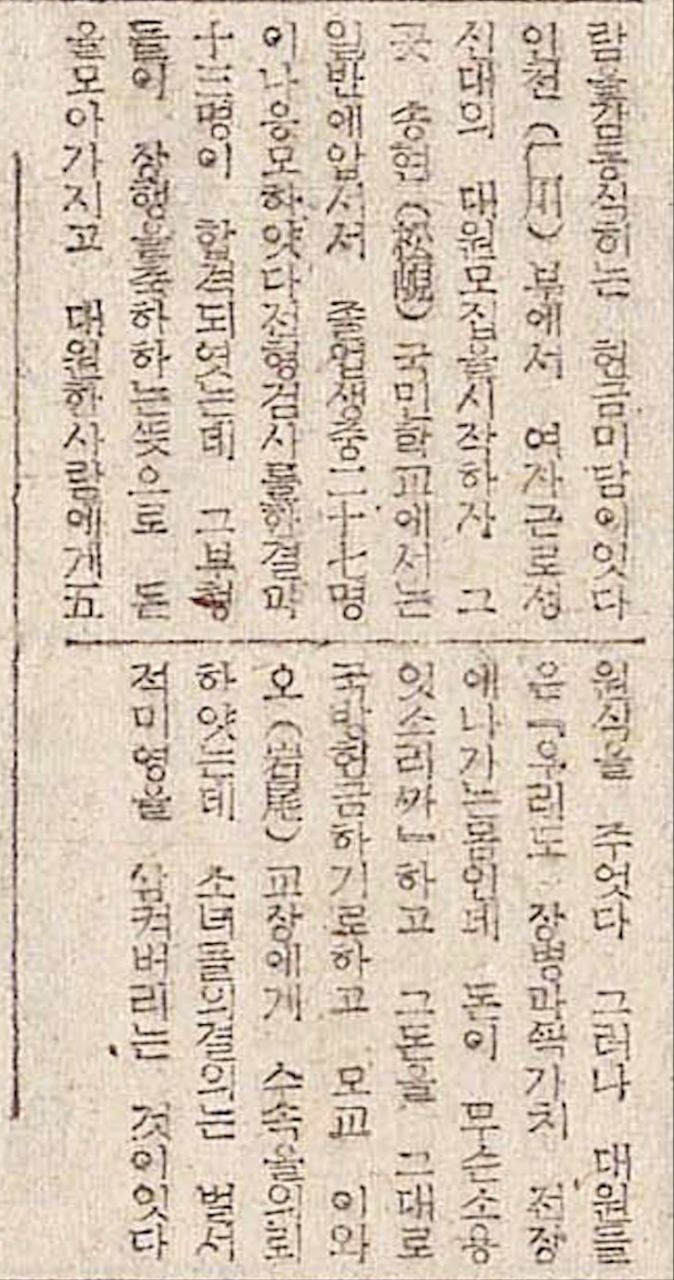 람을감동식히는 헌금미담이잇다
인천(仁川)부에서 여자근로정
신대의 대원모집을시작하자 그
곳 송현(松峴)국민학교에서는
일반에압서서 졸업생중二十七명
이나응모하얏다전형검사를한결과
十三명이 합격되엿는데 그부형
들이 장행을축하하는뜻으로 돈
을모아가지고 대원한사람에게五
원식을 주엇다 그러나 대원들
은『우리도 장병마찬가치 전장
에나가는몸인데 돈이 무슨소용
잇소리까』하고 그돈을 그대로
국방헌금하기로하고 모교 이와
오(岩尾)교장에게 수속을의뢰
하얏는데 소녀들의결의는 벌서
적미영을 삼켜버리는 것이잇다